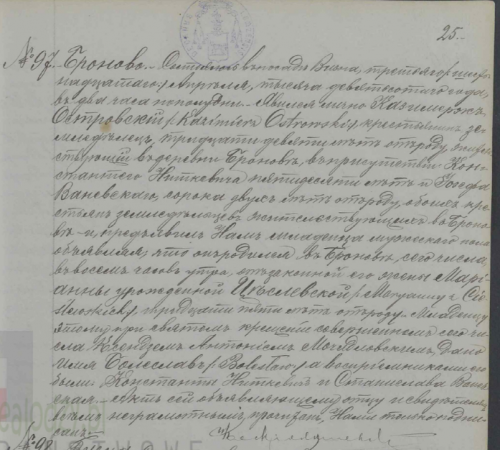 25.
№97. Броново. Состоялось въ посадѣ Вискѣ, третьяго/шестнадцатаго/
Апрѣля, тысяча девятьсотаго года,
въ два часа пополудни. Явился лично Казимеръ
Островскій /Kazimierz Ostrowski/, крестьянинъ земледѣлецъ,
тридцати девяти лѣтъ отъ роду, жительствующій
въ деревнѣ Броновѣ, въ присутствіи Константаго
Ниткевича пятидесяти лѣтъ и Іосифа
Ваневскаго, сорока двухъ лѣтъ отъ роду, обоихъ крестьянъ
земледѣльцевъ жительствующихъ въ Броновѣ
и предъявилъ Намъ младенца мужескаго пола
объявляя, что онъ родился въ Броновѣ, сего числа,
въ восемь часовъ утра, отъ законной его жены Маріанны
урожденной /Maryanny z
/, тридцати пяти лѣтъ отъ роду. Младенцу
этому при святомъ крещеніи совершенномъ сего числа
Ксендзомъ Антоніемъ дано
имя Болеславъ /Bolesław/, а воспріемниками его
были: Константы Ниткевичъ и Станислава
Актъ сей объявляющему отцу и свидѣтелямъ
неграмотнымъ прочитанъ, Нами только подписанъ.
№98.